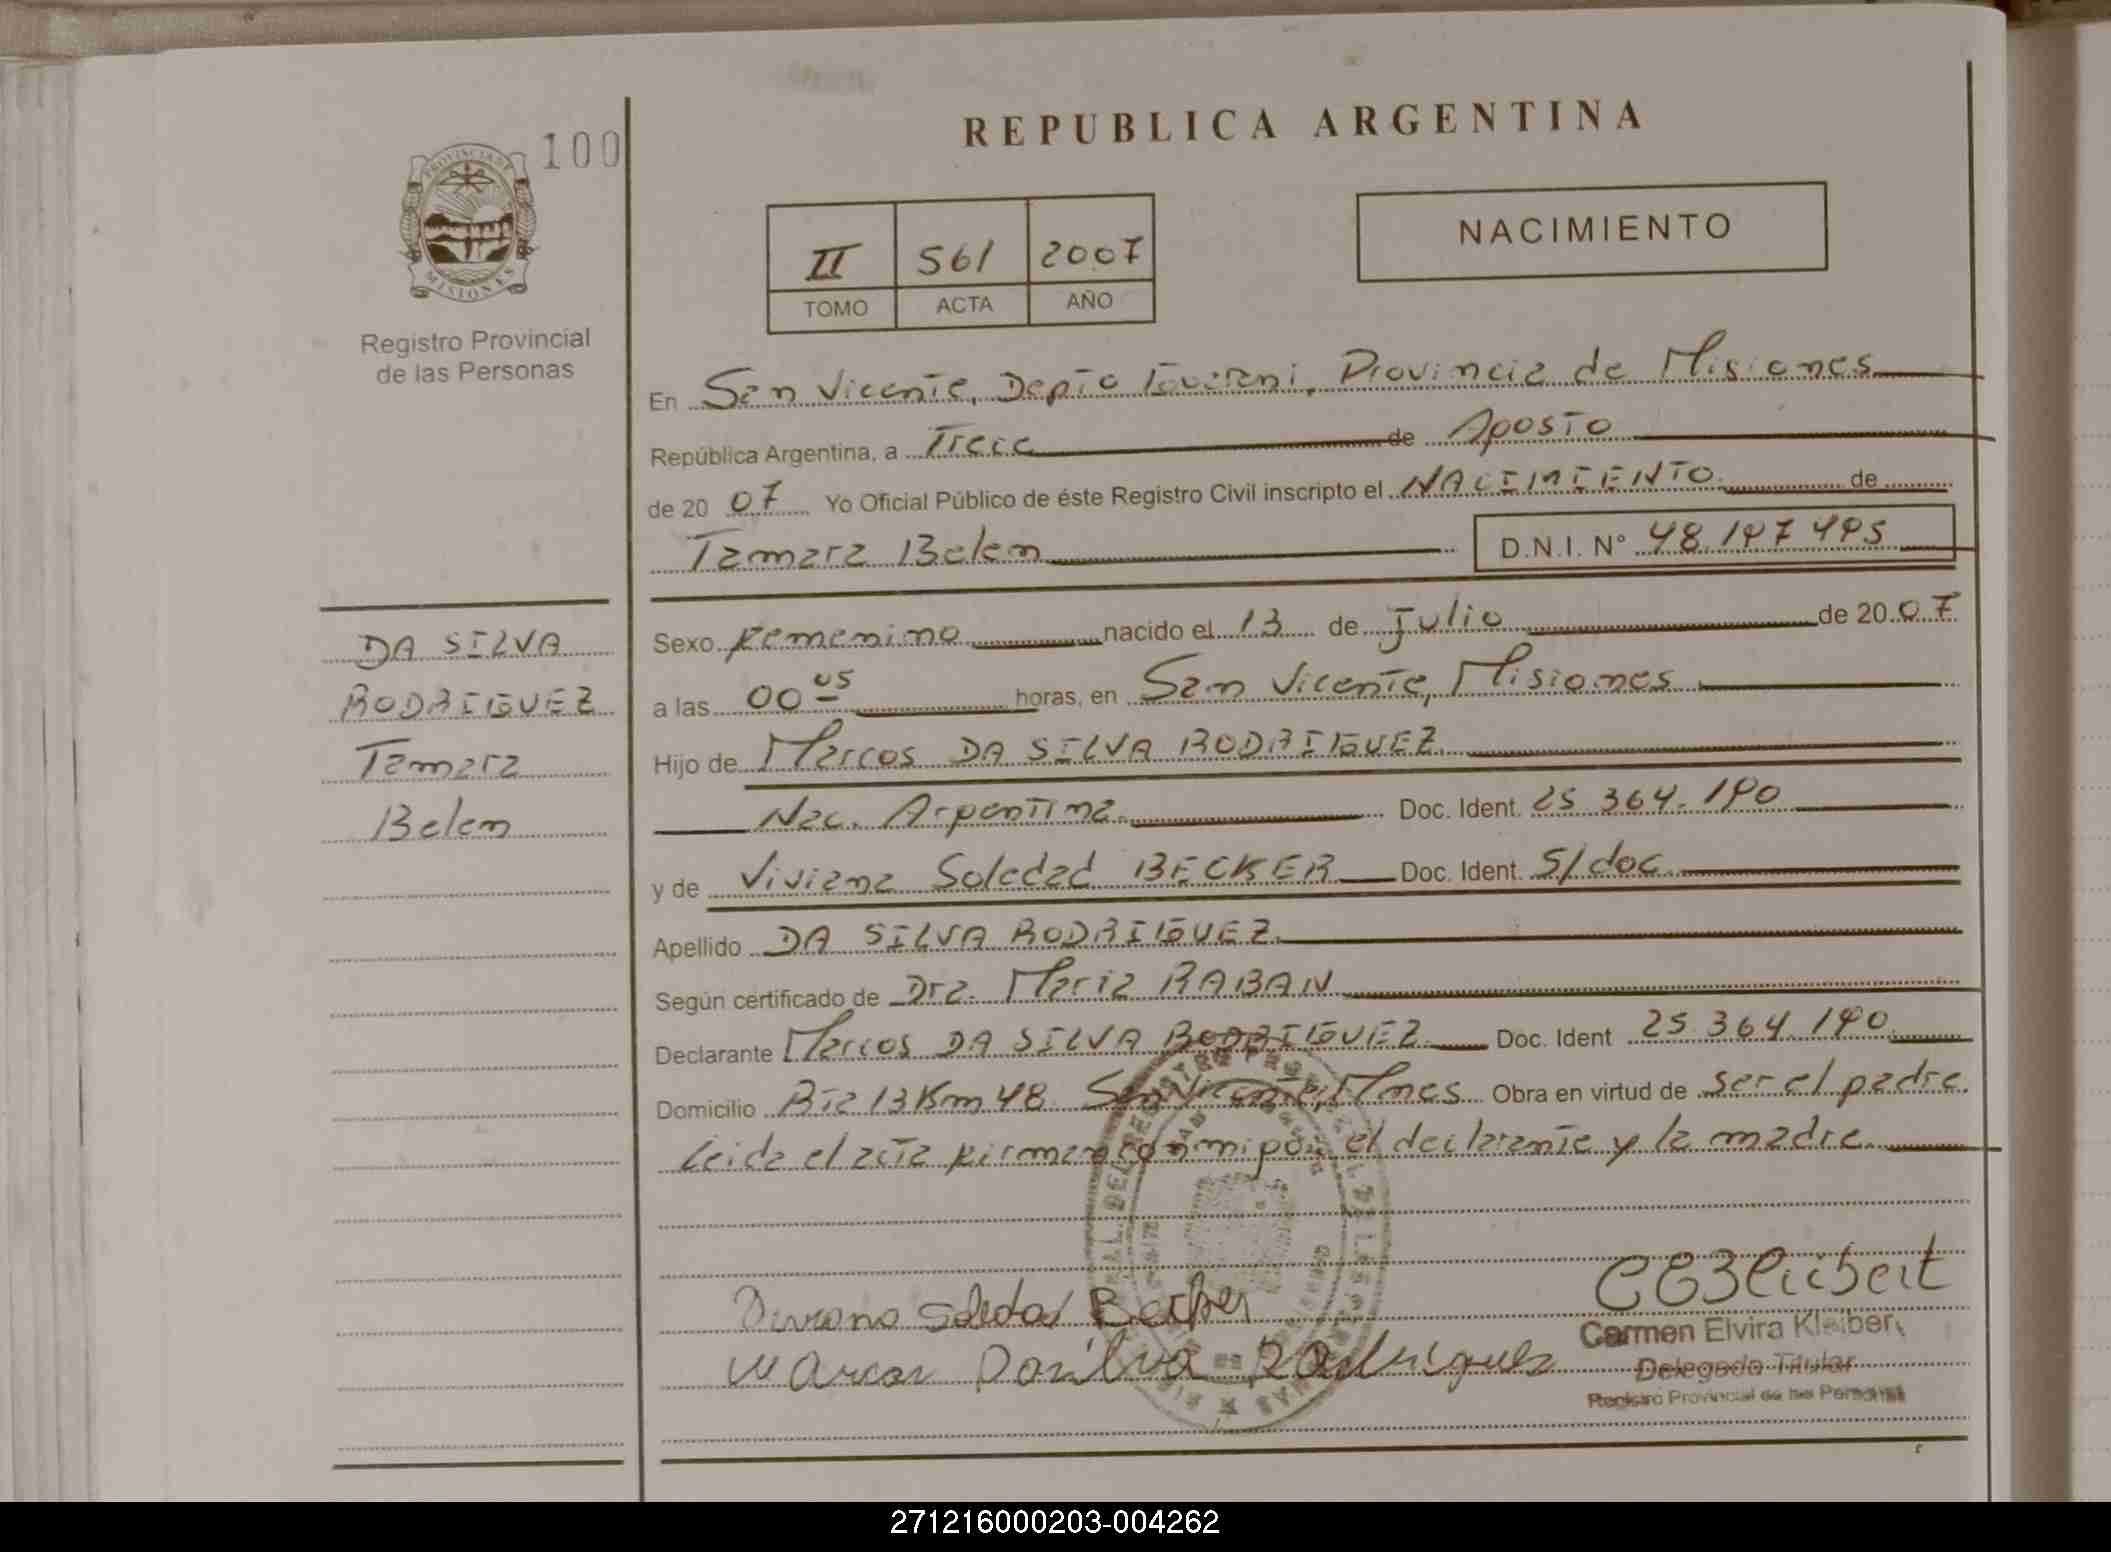 100
REPUBLICA ARGENTINA
PROVINCIA DE
MISIONES
II 561 2007
TOMO ACTA AÑO
NACIMIENTO
Registro Provincial
de las Personas
En San Vicente, Depto Guarani, Provincia de Misiones
República Argentina, a Trece de Agosto
de 20 07 Yo Oficial Público de éste Registro Civil inscripto el NACIMIENTO de
Tamara Belen D.N.I. Nº
DA SILVA
RODRIGUEZ
Tamara
Belen
Sexo Femenino nacido el 13 de Julio de 20 07
a las 00 05 horas, en San Vicente, Misiones
Hijo de Marcos DA SILVA RODRIGUEZ
Nac. Argentina Doc. Ident. 25 364. 190
y de Viviana Soledad BECKER Doc. Ident. S/doc
Apellido DA SILVA RODRIGUEZ
Según certificado de Dra. Maria RABAN
Declarante Marcos DA SILVA RODRIGUEZ Doc. Ident 25 364. 190
Domicilio Rta 13 Km 48 San Vicente, Mnes Obra en virtud de ser el padre.
Leida el acta firman con migo el declarante y la madre.
Viviana Soledad Becker
Marcos Dasilva Rodriguez
CEKleibert
Carmen Elvira Kleibert
Delegada Titular
Registro Provincial de las Personas
271216000203-004262